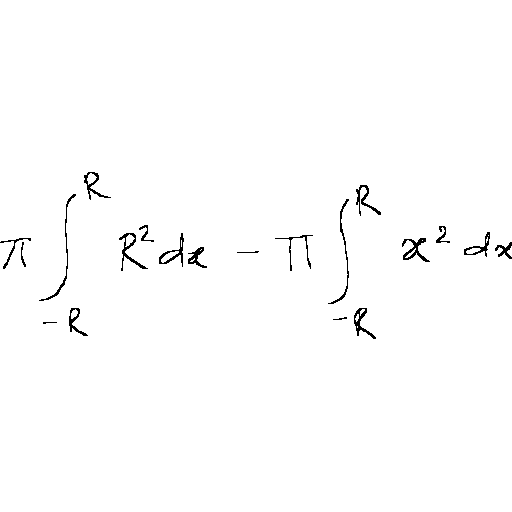 π ∫_{-R}^{R} R² dx - π ∫_{-R}^{R} x² dx